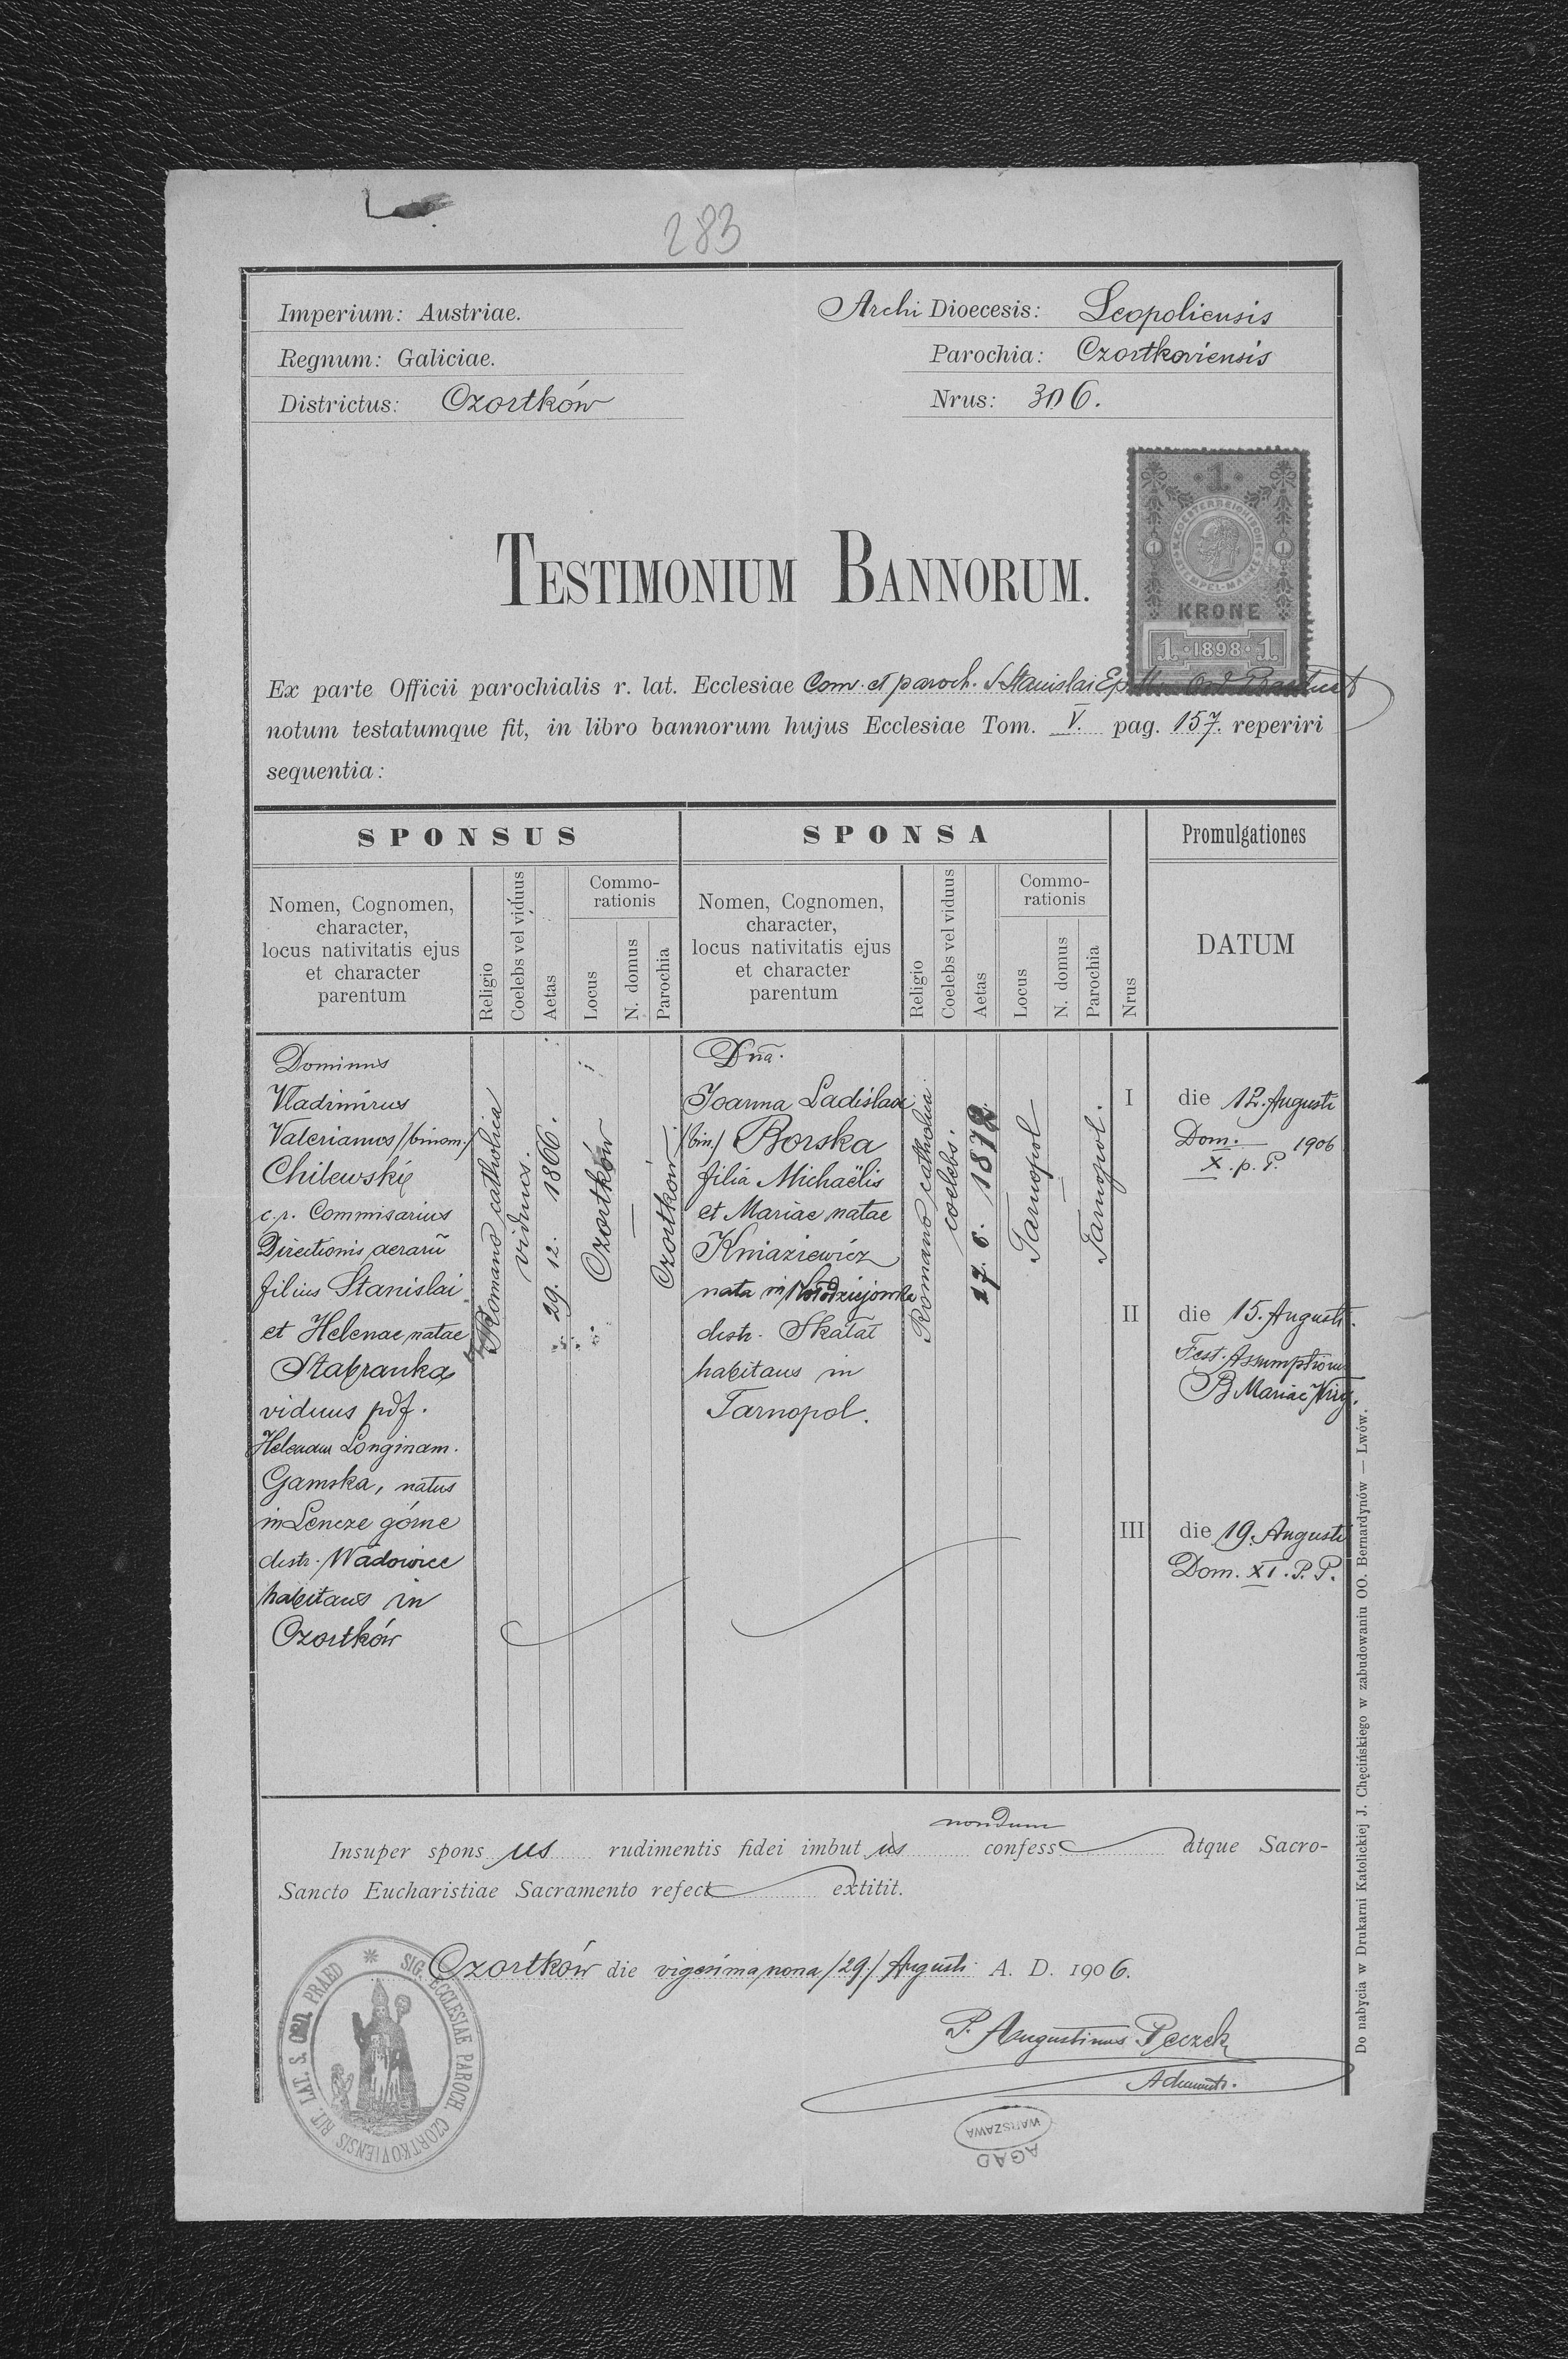 283
Imperium: Austriae.
Archi Dioecesis: Leopoliensis
Regnum: Galiciae.
Parochia: Czortkoviensis
Districtus: Czortków
Nrus: 306.
1
K.K. OESTERREICHISCHE STEMPEL-MARKE
1 1
KRONE
1 · 1898 · 1
TESTIMONIUM BANNORUM.
Ex parte Officii parochialis r. lat. Ecclesiae Conv. et paroch. S Stanislai Ep.
notum testatumque fit, in libro bannorum hujus Ecclesiae Tom. V. pag. 157. reperiri
sequentia:
SPONSUS
SPONSA
Promulgationes
Nomen, Cognomen,
character,
locus nativitatis ejus
et character
parentum
Religio
Coelebs vel viduus
Aetas
Commo-
rationis
Locus
N. domus
Parochia
Nomen, Cognomen,
character,
locus nativitatis ejus
et character
parentum
Religio
Coelebs vel viduus
Aetas
Commo-
rationis
Locus
N. domus
Parochia
Nrus
DATUM
Dominus
Vladimirus
Valerianus /binom./
Chilewski
c. r. Commisarius
Directionis aerarii
filius Stanislai
et Helenae natae
viduus
Helenam Longinam.
Gamska, natus
in Lencze górne
distr. Wadowice
habitans in
Czortków
Romano catholica
viduus.
29. 12. 1866.
Czortków
—
Czortków
Dna.
Joanna Ladislava
/bin./ Borska
filia Michaëlis
et Mariae natae
Kniaziewicz
nata in Kołodziejówka
distr. Skałat
habitans in
Tarnopol.
Romano catholica
coelebs.
27. 6. 1872.
Tarnopol
—
Tarnopol.
I die 12. Augusti
Dom. 1906
X. p. P.
II die 15. Augusti.
Fest. Assumptionis
B Mariae Virg.
III die 19. Augusti
Dom. XI. P. P.
nondum
Insuper spons us rudimentis fidei imbut us confess atque Sacro-
Sancto Eucharistiae Sacramento refect extitit.
Czortków die vigesima nona /29/ Augusti A. D. 1906.
P. Augustinus
SIG. ECCLESIAE PAROCH. CZORTKOVIENSIS RIT. LAT. S. ORD. PRAED
WARSZAWA
AGAD
Do nabycia w Drukarni Katolickiej J. Chęcińskiego w zabudowaniu OO. Bernardynów — Lwów.